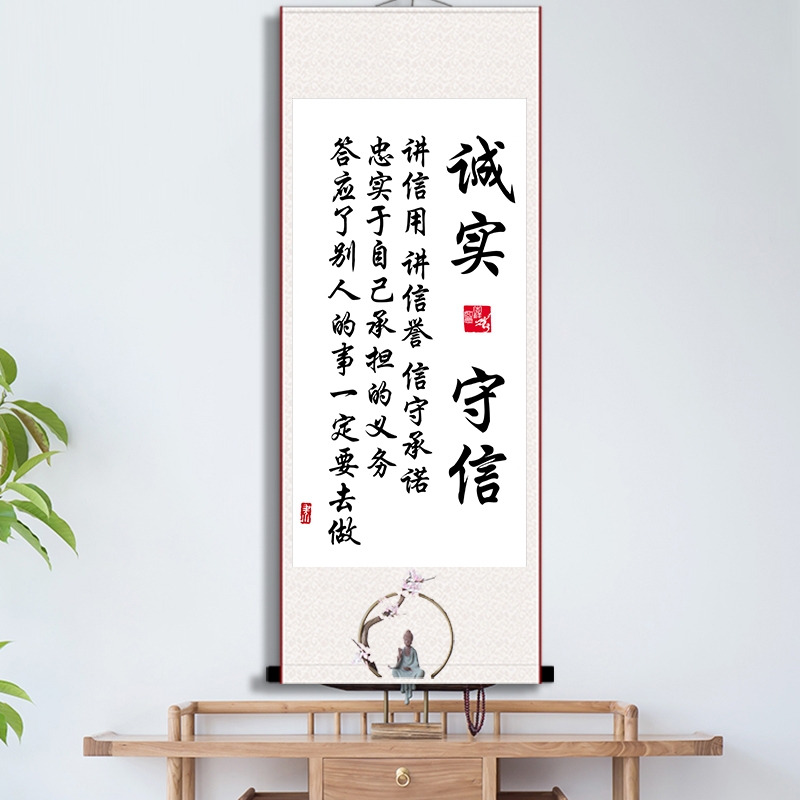 诚实 守信
讲信用 讲信誉 信守承诺
忠实于自己承担的义务
答应了别人的事一定要去做